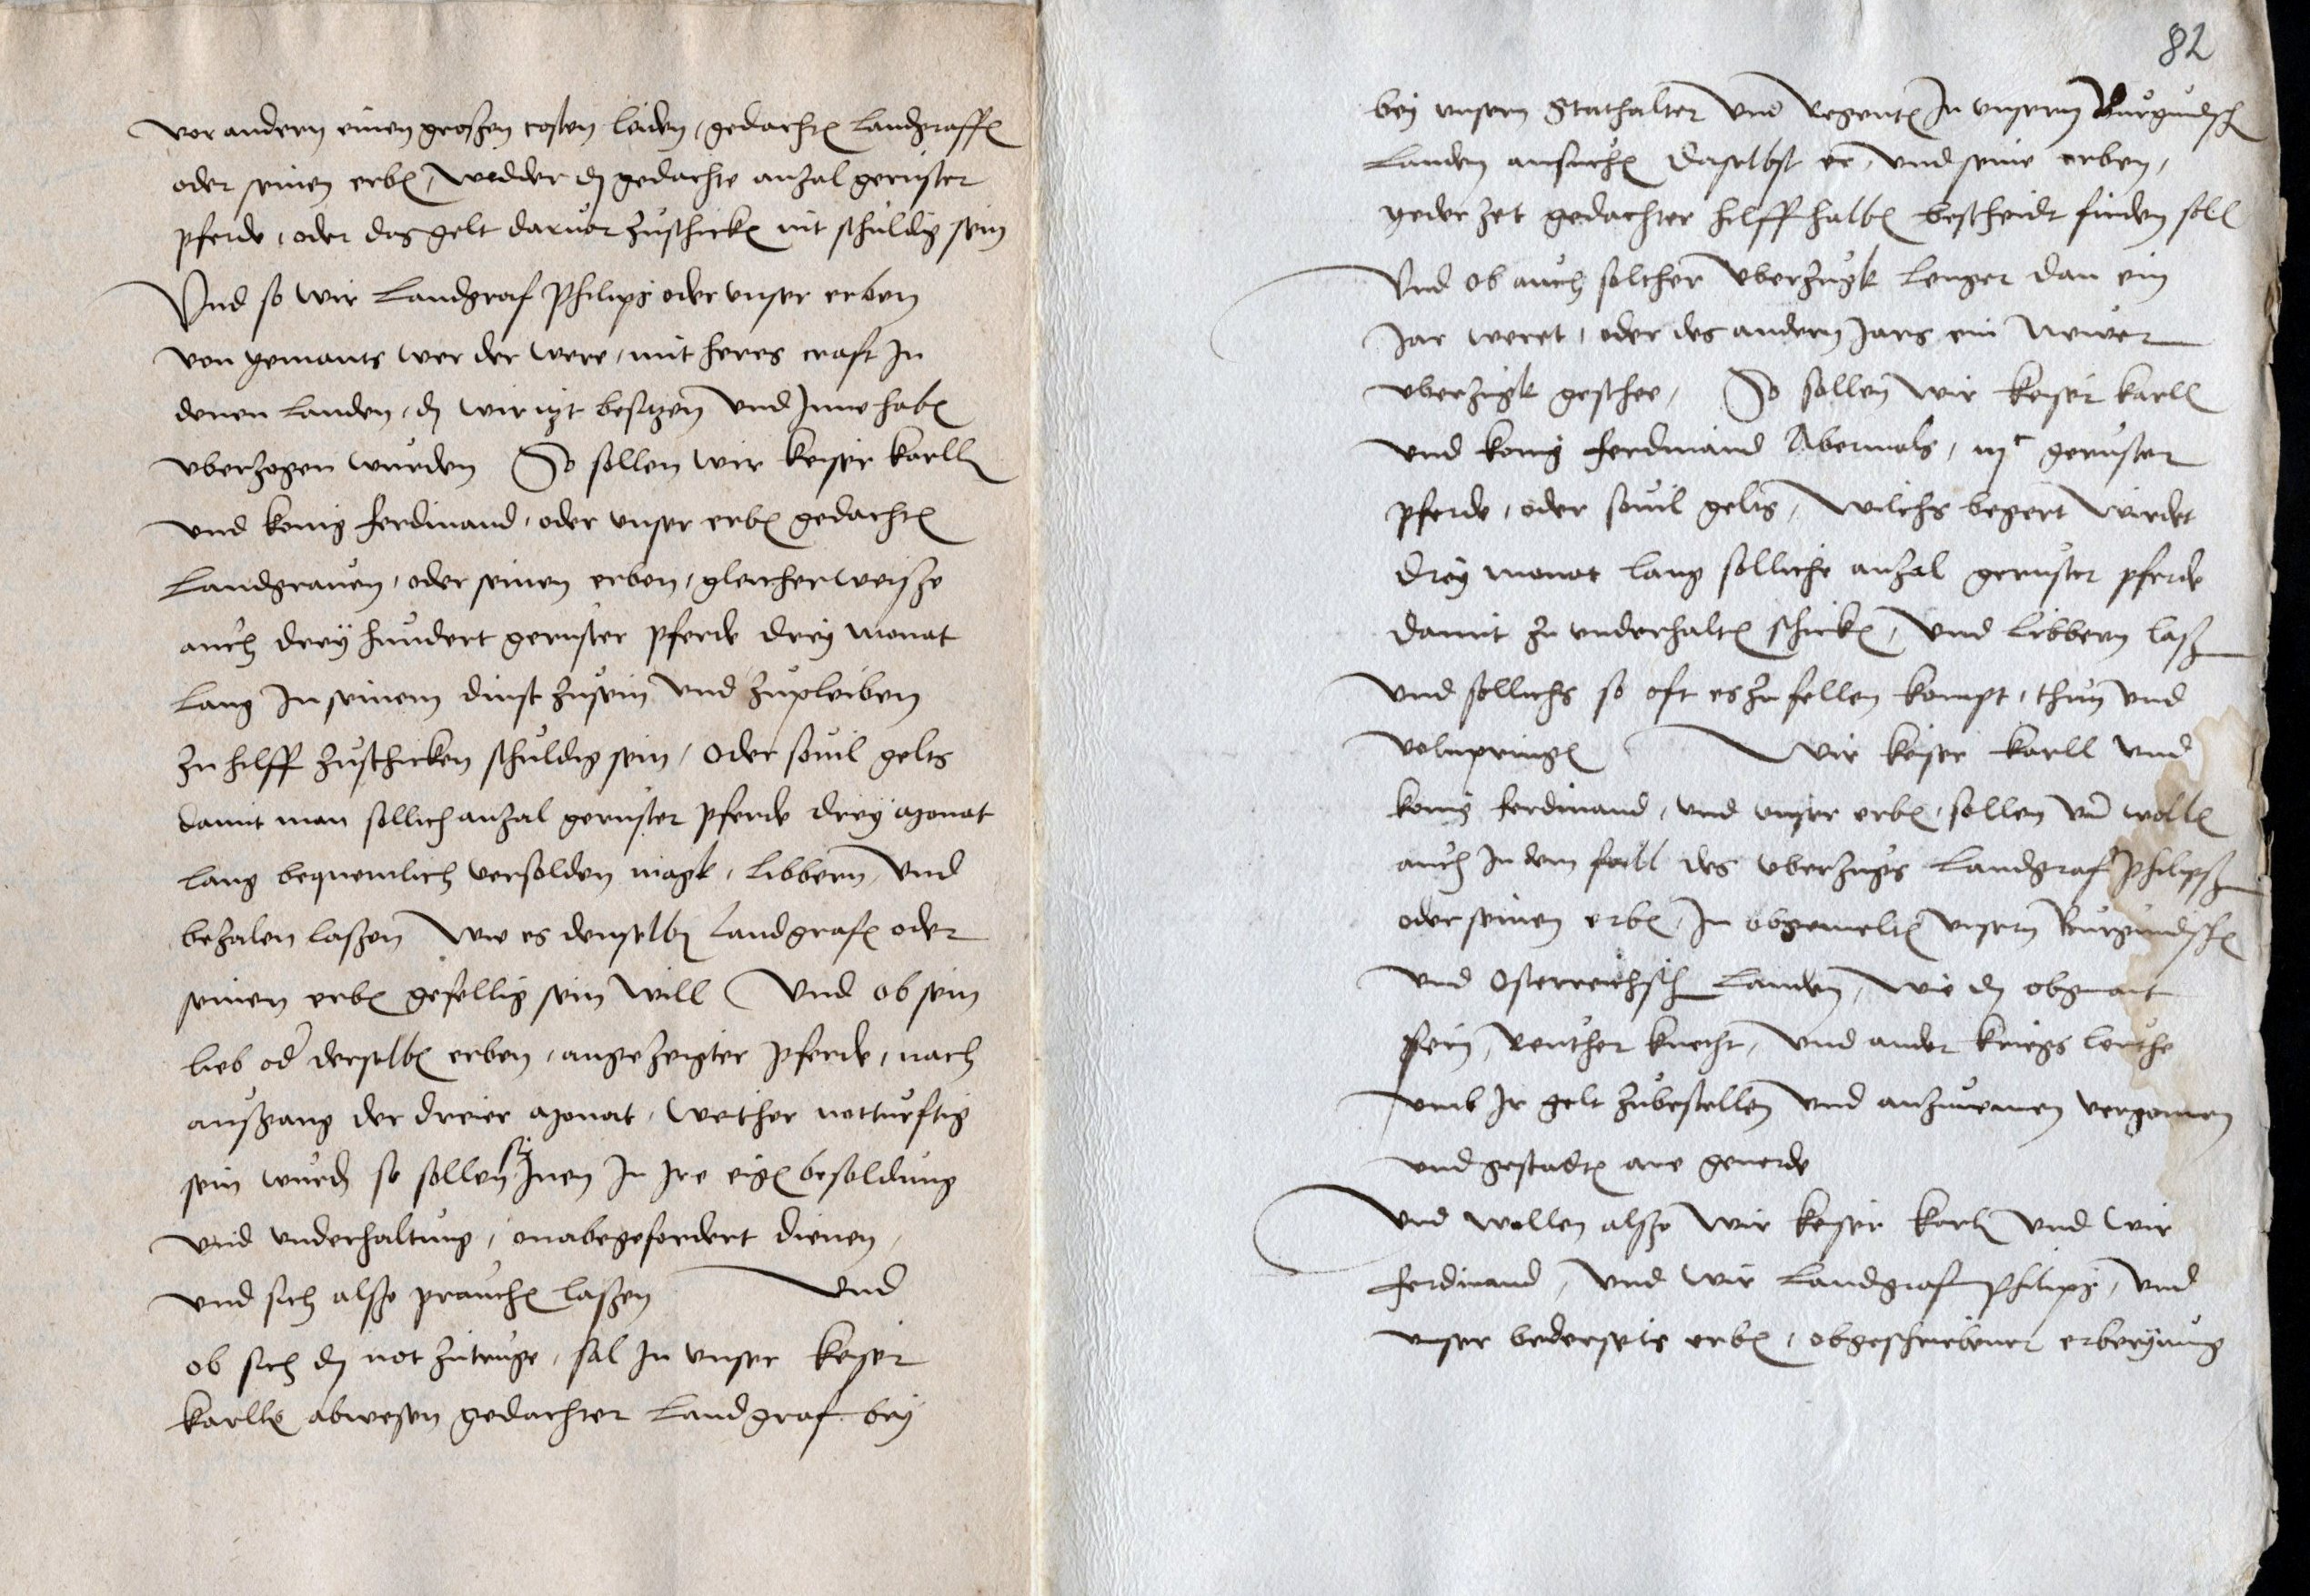 vor andern einen großen costen leiden, gedachten Landgraffen
oder seinen erben, widder die gedachte anzal geruster
pferde, oder das gelt daruor zuschicken nit schuldig sein
Vnd so wir Landgraf Philips oder vnser erben
von yemants wer der were, mit heres craft In
denen Landen, die wir itzt besitzen vnd Inne haben
vberzogen wurden So sollen wir Keiser Karll
vnd konig Ferdinand, oder vnser erben gedachten
Landgrauen, oder seinen erben, gleicher weisze
auch drey hundert geruster pferde drey monat
lang In seinem dinst zusein vnd zupleiben
zu hilff zuschicken schuldig sein, Oder souil gelts
damit man sollich anzal geruster pferde drey Monat
lang bequemlich versolden magk, libbern, vnd
bezalen laßen Wie es denselben Landgrafen oder
seinen erben gefellig sein will Vnd ob sein
lieb oder derselben erben, angezeigter pferde, nach
außgang der dreier Monat, weither notturftig
sein wurde so sollen sie Inen In Ire eigen besoldung
vnd vnderhaltung, onabegefordert dienen,
vnd sich alßo prauchen laßen Vnd
ob sich die not zutruge, sal In vnser Keiser
Karlln abwesen gedachter Landgraf bey
82
bey vnsern Stathalter vnd Regenten In vnsern Burgundischen
Landen ansuchen daselbst er, vnd seine erben,
yeder zet gedachter hilff halben bescheidt finden soll
Vnd ob auch solcher vberzugk lenger dan ein
Jar weret, oder des andern Jars ein Newer
vberzugk geschee, So sollen wir Keiser Karll
vnd konig Ferdinand Abermals, iij c geruster
pferde, oder souil gelts, wilchs begert wirdet
drey monat lang solliche anzal geruster pferde
damit zu vnderhalten schicken, vnd libbern laßen
vnd sollichs so oft es zu fellen kompt, thun vnd
volnpringen Wir Keiser Karll vnd
konig Ferdinand, vnd vnser erben, sollen vnd wollen
auch In dem fall des vberzugs Landgraf Philipßen
oder seinen erben, In obgemelten vnsern Burgundischen
vnd Osterreichisch Landen, wie die obgnant
sein, Reuther knecht, vnd ander kriegs leuthe
vmb Ir gelt zubestellen vnd anzunemen vergonnen
vnd gestadten ane geuerde
Vnd wollen alßo wir Keiser Karl vnd wir
Ferdinand, vnd wir Landgraf Philips, vnd
vnser bederseits erben, obgeschriebener erbeynung